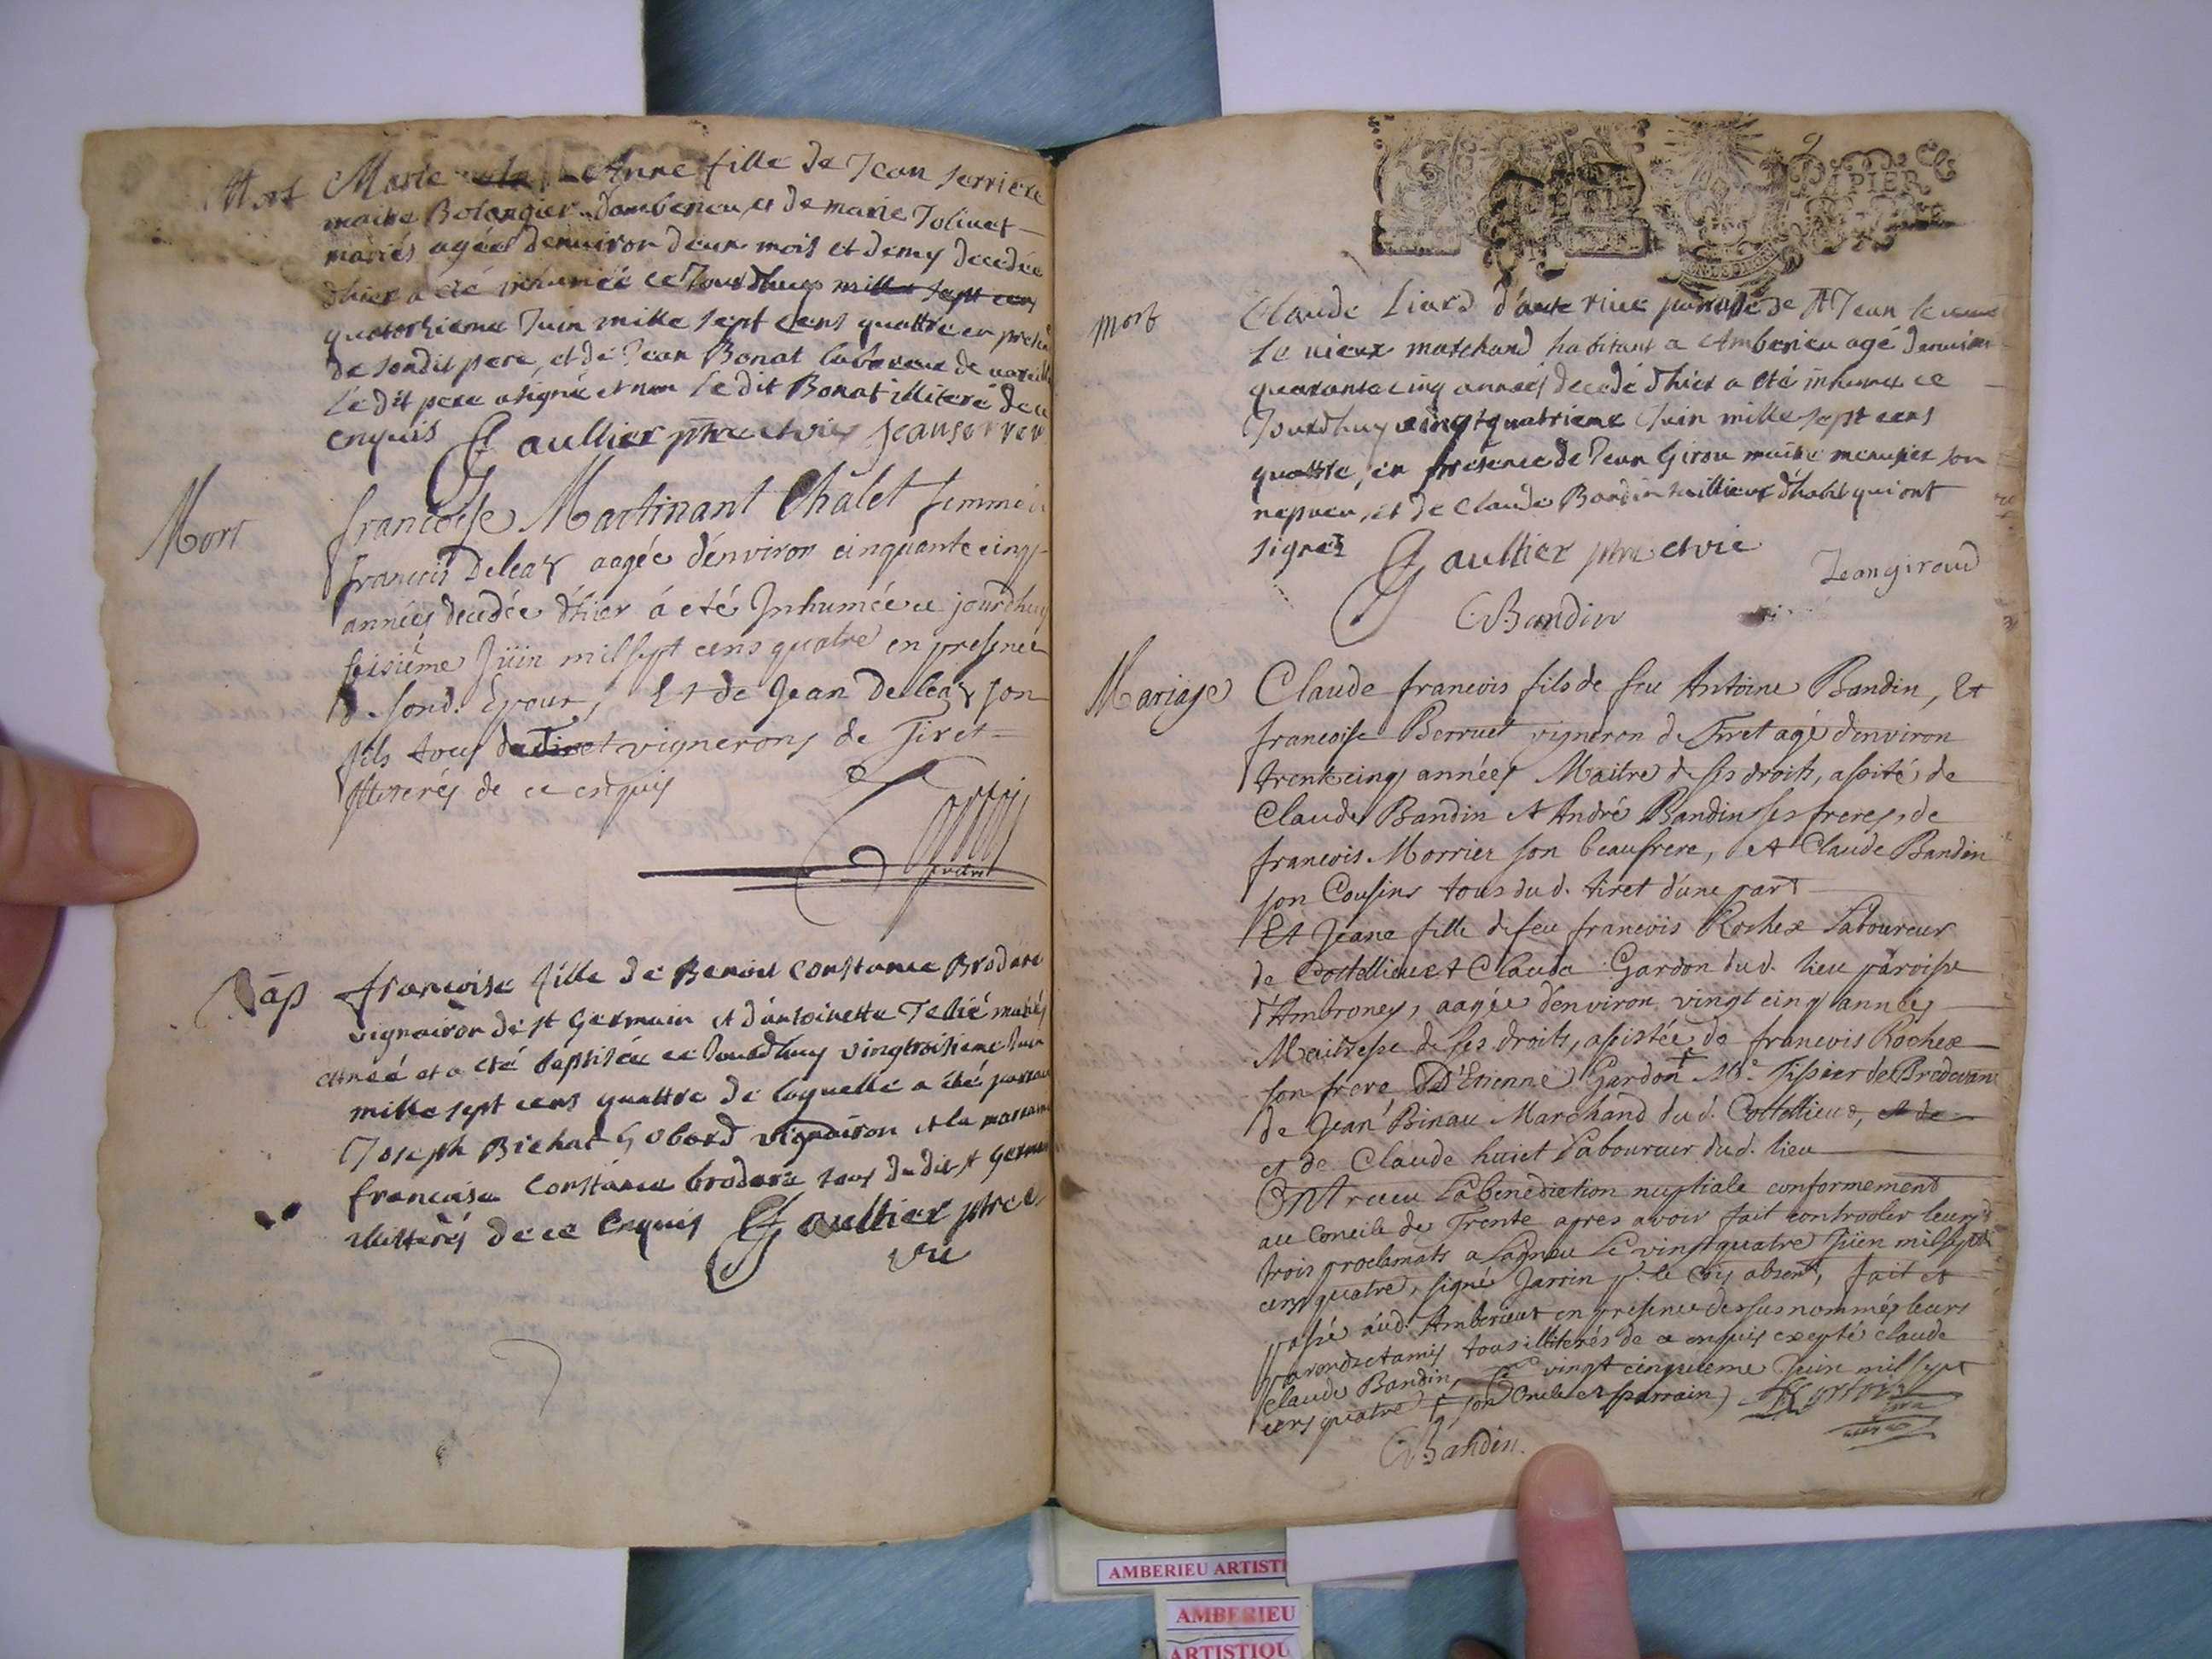 Mort
Marie Anne fille de Jean serriere
maitre Bolangier dambericu, et de marie Tolinet
mariés agée denuiron deux mois et demy decedée
dhier a été inhumée ce Jourdhuy mille sept cens
quatorzieme Juin mille sept cens quattre en
de sondit pere, et de Jean Bonat laboureur de
le dit pere a signé et non le dit Bonat illiteré de ce
enquis Gaullier ptre et vic
Mort
francoise Martinant Chalet femme
francois Deleaz aagée d'environ cinquante cinq
années decedée d'hier á eté Inhumée ce jourdhuy
seisiême Jüin mil sept cens quatre en presence
de sond. Epoux, Et de Jean Deleaz son
fils tous du Tiret vignerons de Tiret
illiterés de ce enquis
Bap
francoise fille de Benoit Constance Brodare
vignairon de st Germain et d'antoinette Tellié mariés
est neé et a eté baptisée ce Jourdhuy vingtroisieme Juin
mille sept cens quattre de laquelle a été parrain
Joseph Bichat Gobard vignairon et la marraine
francoise Constance brodare tous dudit st Germain
illitterés de ce Enquis Gaullier ptre et
vic
PAPIER
mort
Claude Liard paroisse de st Jean le vieux
le vieux marchand habitant a Amberieu agé denuiron
quarante cinq anneés decedé d'hier a eté inhumé ce
Jourdhuy vingt quatrieme Juin mille sept cens
quattre, en presence de Jean Girou maitre menusier son
nepueu, et de Claude Bandin taillieur d'habit qui ont
signez Gaullier ptre et vic
Jean giroud
CBandin
Mariage
Claude francois fils de feu Antoine Bandin, Et
francoise Berruet vigneron de Tiret agé d'environ
trente cinq années Maitre de ses droits, assité de
Claude Bandin et André Bandin ses freres, de
francois Morrier son beaufrere, et Claude Bandin
son Cousins tous du d. tiret d'une part
Et Jeane fille de feu francois Rochex Laboureur
de Cottellieux et Clauda Gardon dud. lieu paroisse
d'Ambroney, aagée d'environ vingt cinq années
Maitresse de ses droits, assistée de francois Rochex
son frere D'Etienne Gardon + Me. Tissier de Bredevant
de Jean Binau Marchand du d. Cottellieux, et de
et de Claude huiet Laboureur dud. lieu
Ont receu la benediction nuptiale conformement
au Concile de Trente apres avoir fait controoler leurs
trois proclamats a Lagneu Le vingt quatre Jüin mil sept
cens quatre, signé Jarrin pr. le Cõis absent, fait et
passé áud. Amberieux en presence des susnommés leurs
paronds et amis tous illiterés de ce enquis excepté Claude
Claude Bandin, Ce vingt cinquieme Juin mil sept
cens quatre + son Oncle et parrain)
CBandin.
AMBERIEU ARTISTI
AMBERIEU
ARTISTIQU